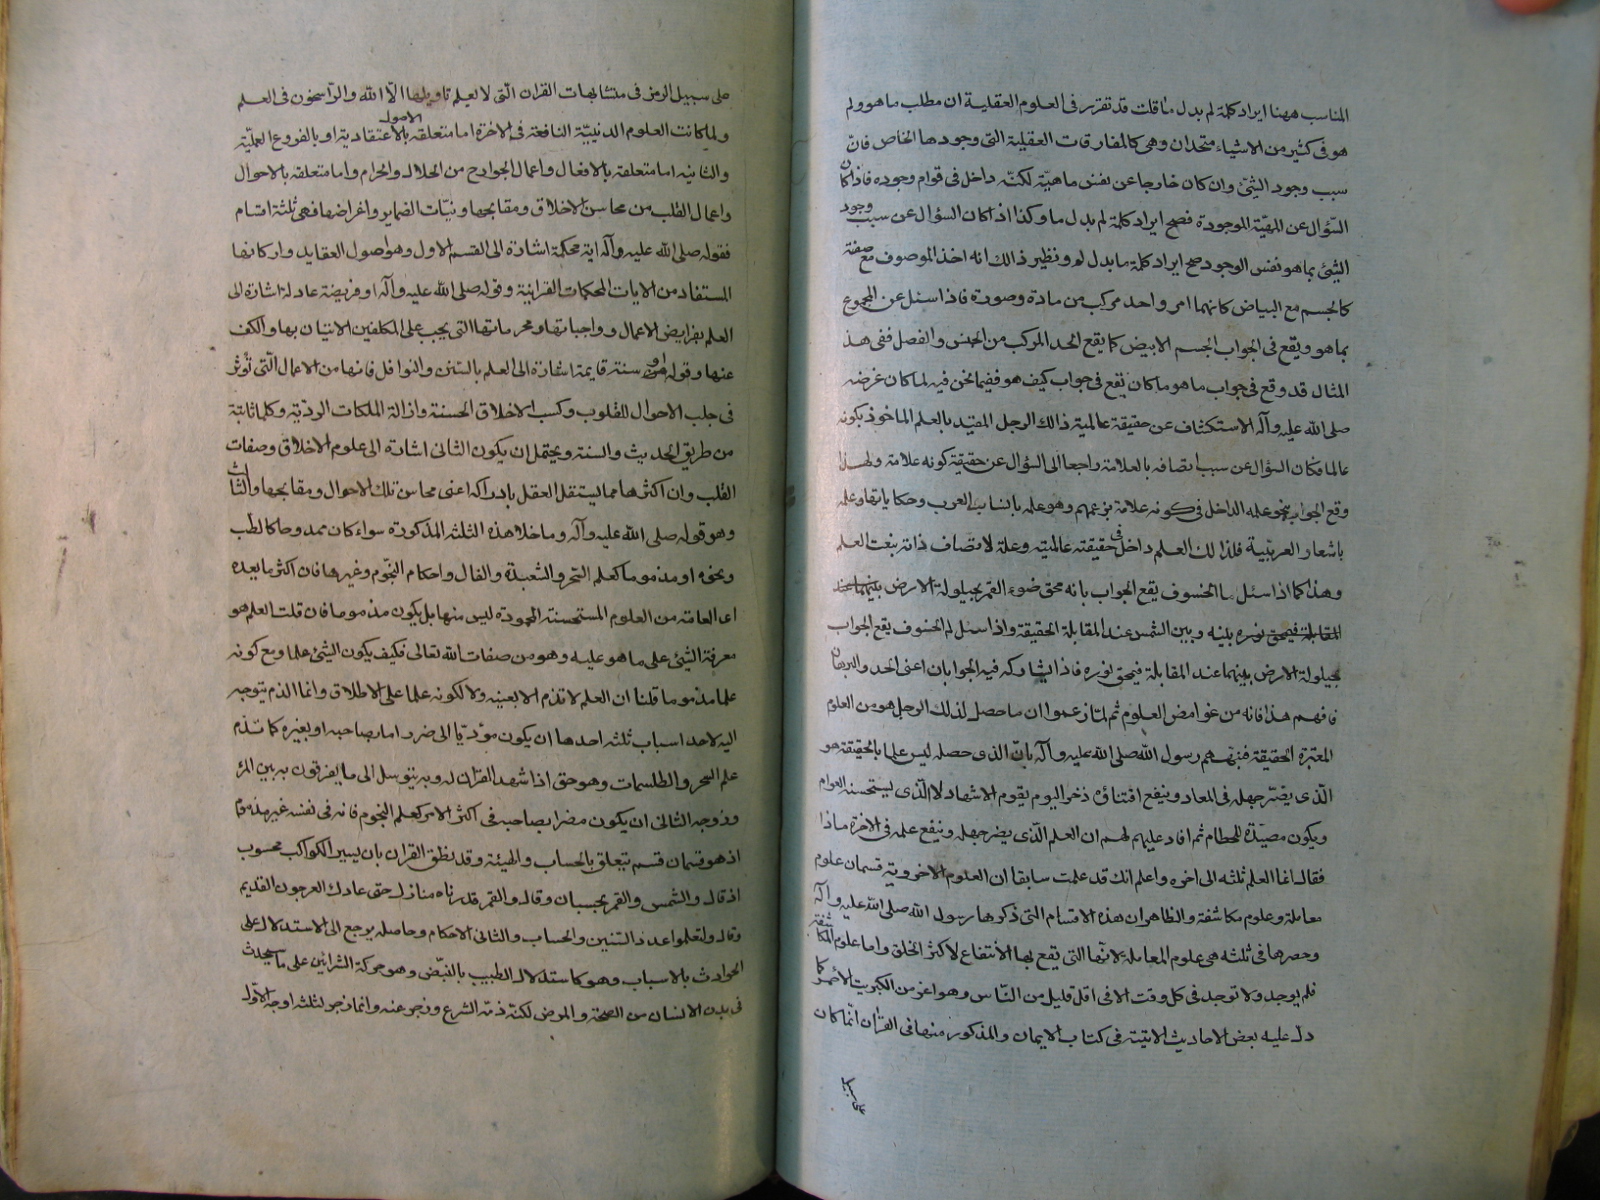 المناسب ههنا ايراد كلمة لم بدل ما قلت قد تقرر فى العلوم العقلية ان مطلب ما هو ولم
هو فى كثير من الاشياء متحدان وهى كالمفارقات العقلية التى وجودها الخاص فانّ
سبب وجود الشئ وان كان خارجا عن نفس ماهيّة لكنّه داخل فى قوام وجوده فاذا كان
السّؤال عن المهيّة الموجودة فصح ايراد كلمة لم بدل ما وكذا اذا كان السؤال عن سبب وجود
الشئ بما هو نفس الوجود صح ايراد كلمة ما بدل لم ونظير ذالك انه اخذ الموصوف مع صفته
كالجسم مع البياض كانهما امر واحد مركب من مادة وصورة فاذا سئل عن المجموع
بما هو ويقع فى الجواب الجسم الابيض كما يقع الحد المركب من الجنس والفصل ففى هذا
المثال قد وقع فى جواب ما هو ما كان يقع فى جواب كيف هو ففيما نحن فيه لما كان غرضه
صلى الله عليه وآله الاستكشاف عن حقيقة عالمية ذالك الرجل المقيد بالعلم الماخوذ بكونه
عالما فكان السؤال عن سبب اتصافه بالعلامة راجعا الى السؤال عن حقيقة كونه علامة ولهذا
وقع الجواب بنحو علمه الداخل فى كونه علامة بزعمهم وهو علمه بانساب العرب وحكاياتها وعلمه
باشعار العربيّة فلذالك العلم داخل فى حقيقته عالميته وعلة لاتصاف ذاته بنعت العلم
وهذا كما اذا سئل ما الخسوف يقع الجواب بانه محق ضوء القمر بحيلولة الارض بينهما عند
المقابلة فيمحق نوره بينه وبين الشمس عند المقابلة الحقيقة واذا سئل لم الخسوف يقع الجواب
بحيلولة الارض بينهما عند المقابلة فيمحق نوره فاذا يشاركه فيه الجوابان اعنى الحد والبرهان
فافهم هذا فانه من غوامض العلوم ثم لمّا زعموا ان ما حصل لذلك الرجل هو من العلوم
المعتبرة الحقيقة فنبّههم رسول الله صلى الله عليه وآله بانّ الذى حصله ليس علما بالحقيقة هو
الّذى يضر جهله فى المعاد وينفع اقتناؤه ذخر اليوم يقوم الاشهاد لا الّذى يستحسنه العوام
ويكون مصيّدة للحطام ثم افاد عليهم لهم ان العلم الّذى يضر جهله وينفع علمه فى الاخرة ماذا
فقال انما العلم ثلثه الى اخره واعلم انك قد علمت سابقا ان العلوم الاخروية قسمان علوم
معاملة وعلوم مكاشفة والظاهر ان هذه الاقسام التى ذكرها رسول الله صلى الله عليه وآله
وحصرها فى ثلثه هى علوم المعاملة لانّها التى يقع بها الأنتفاع لاكثر الخلق واما علوم المكاشفة
فلم يوجد ولا توجد فى كل وقت الا فى اقل قليل من النّاس وهو اعز من الكبريت الاحمر كما
دلّ عليه بعض الاحاديث الاتية فى كتاب الايمان والمذكور منها فى القرأن انّما كان
على سبيل
على سبيل الرمز فى متشابهات القران الّتى لا يعلم تاويلها الّا الله والرّاسخون فى العلم
ولما كانت العلوم الدنيبيّة النافعة فى الاخرة اما متعلقه بالاصول الاعتقادية او بالفروع العمليّة
والثانيه اما متعلقه بالافعال واعمال الجوارح من الحلال والحرام واما متعلقه بالاحوال
واعمال القلب من محاسن الاخلاق ومقابحها ونيّات الضماير واغراضها فهى ثلثة اقسام
فقوله صلى الله عليه وآله اية محكمة اشارة الى القسم الاول وهو اصول العقايد واركانها
المستفاد من الايات المحكمات القرانية وقوله صلى الله عليه وآله او فريضة عادلة اشارة الى
العلم بفرايض الاعمال وواجباتها ومحرماتها التى يجب على المكلفين الاتيان بها والكف
عنها وقوله او سنة قايمة اشارة الى العلم بالسّنن والنوافل فانها من الاعمال الّتى تؤثر
فى جلب الاحوال للقلوب وكسب الاخلاق الحسنة وازالة الملكات الرديّة وكلها ثابتة
من طريق الحديث والسنة ويحتمل ان يكون الثانى اشارة الى علوم الاخلاق وصفات
القلب وان اكثرها مما يستقل العقل بادراكه اعنى محاسن تلك الاحوال ومقابحها والثالث
وهو قوله صلى الله عليه وآله وما خلا هذه الثلثه المذكورة سواء كان ممدوحا كالطب
ونحوه او مذموما كعلم السّحر والشعبدة والفال واحكام النجّوم وغيرها فان اكثر ما يعده
اى العامة من العلوم المستحسنة المحمودة ليس منها بل يكون مذموما فان قلت العلم هو
معرفة الشئ على ما هو عليه وهو من صفات الله تعالى فكيف يكون الشئ علما ومع كونه
علما مذموما قلنا ان العلم لا تذم الا بعينه ولا لكونه علما على الاطلاق وانما الذم يتوجه
اليه لاحد اسباب ثلثه احدها ان يكون مؤديّا الى ضرر اما بصاحبه او بغيره كما تذم
علم السحر والطلسمات وهو حق اذا شهد القران له وبه يتوسل الى ما يفرقون به بين المرء
وزوجه الثانى ان يكون مضرا بصاحبه فى اكثر الامر كعلم النجوم فانه فى نفسه غير مذموم
اذ هو قسمان قسم يتعلق بالحساب والهيئة وقد نطق القران بان سير الكواكب محسوب
اذ قال والشمس والقمر بحسبان وقال والقمر قدرناه منازل حتى عاد ك العرجون القديم
وقال ولتعلموا عدد السّنين والحساب والثانى الاحكام وحاصله يرجع الى الاستدلال على
الحوادث بالاسباب وهو كاستدلال الطبيب بالنبّض وهو حركة الشرائين على ما سيحدث
فى بدن الانسان من الصحة والمرض لكنّه ذمّه الشرع وزجر عنه وانما زجر لثلثه اوجه الاوّل